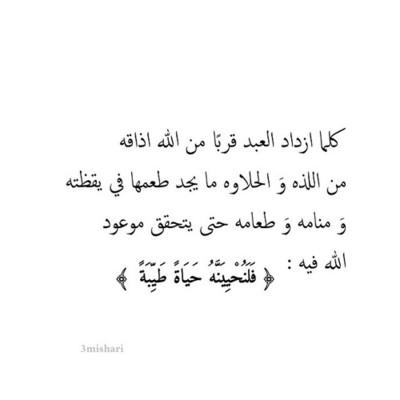 كلما ازداد العبد قربًا من الله اذاقه
من اللذه وَ الحلاوه ما يجد طعمها في يقظته
وَ منامه وَ طعامه حتى يتحقق موعود
الله فيه : ﴿ فَلَنُحْيِيَنَّهُ حَيَاةً طَيِّبَةً ﴾
3mishari